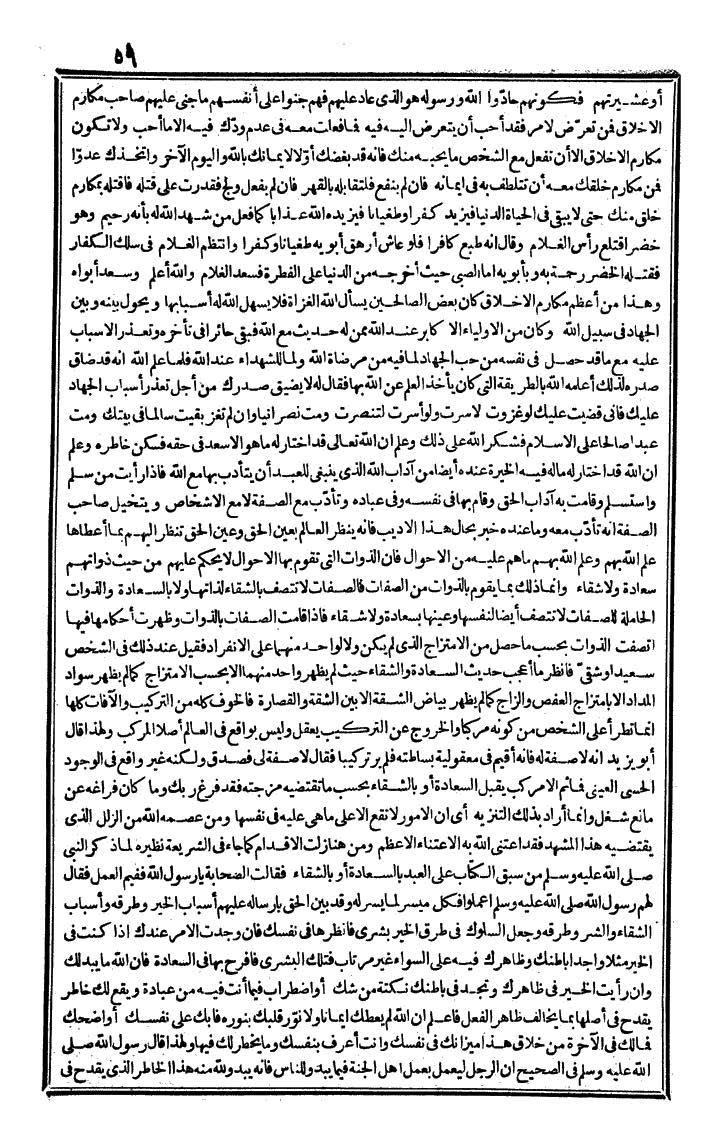 ٥٩
أوعشيرتهم فكونهم حادّوا الله ورسوله هو الذى عاد عليهم فهم جنوا على أنفسهم ما جنى عليهم صاحب مكارم
الاخلاق فمن تعرّض لامر فقد أحب أن يتعرض اليه فيه فما فعلت معه فى عدم ودّك فيه الا ما أحب ولا تكون
مكارم الاخلاق الا أن تفعل مع الشخص ما يحبه منك فانه قد بغضك أوّلا لايمانك بالله واليوم الآخر واتخذك عدوّا
فمن مكارم خلقك معه أن تتلطف به فى ايمانه فان لم ينفع فلتقابله بالقهر فان لم يفعل ولج فقدرت على قتله فاقتله بمكارم
خلق منك حتى لا يبقى فى الحياة الدنيا فيزيد كفرا وطغيانا فيزيده الله عذابا كما فعل من شهد الله له بأنه رحيم وهو
خضر اقتلع رأس الغلام وقال انه طبع كافرا فلو عاش أرهق أبويه طغيانا وكفرا وانتظم الغلام فى سلك الكفار
فقتله الخضر رحمة به وبأبويه اما الصبى حيث أخرجه من الدنيا على الفطرة فسعد الغلام والله أعلم وسعد أبواه
وهذا من أعظم مكارم الاخلاق كان بعض الصالحين يسأل الله الغزاة فلا يسهل الله له أسبابها ويحول بينه وبين
الجهاد فى سبيل الله وكان من الاولياء الاكابر عند الله ممن له حديث مع الله فبقى حائرا فى تأخره وتعذر الاسباب
عليه مع ما قد حصل فى نفسه من حب الجهاد لما فيه من مرضاة الله ولما للشهداء عند الله فلما علم الله انه قد ضاق
صدره لذلك أعلمه الله بالطريقة التى كان يأخذ العلم عن الله بها فقال له لا يضيق صدرك من أجل تعذر أسباب الجهاد
عليك فانى قضيت عليك لو غزوت لاسرت ولو أسرت لتنصرت ومت نصرانيا وان لم تغز بقيت سالما فى بيتك ومت
عبدا صالحا على الاسلام فشكر الله على ذلك وعلم ان الله تعالى قد اختار له ما هو الاسعد فى حقه فسكن خاطره وعلم
ان الله قد اختار له ما له فيه الخيرة عنده أيضا من آداب الله الذى ينبغى للعبد أن يتأدب بها مع الله فاذا رأيت من سلم
واستسلم وقامت به آداب الحق وقام بها فى نفسه وفى عباده وتأدّب مع الصفة لامع الاشخاص ويتخيل صاحب
الصفة انه تأدّب معه وما عنده خبر بحال هذا الاديب فانه ينظر العالم بعين الحق وعين الحق تنظر اليهم بما أعطاها
علم الله بهم وعلم الله بهم ما هم عليه من الاحوال فان الذوات التى تقوم بها الاحوال لا يحكم عليهم من حيث ذواتهم
سعادة ولاشقاء وانما ذلك بما يقوم بالذوات من الصفات فالصفات لا تتصف بالشقاء لذاتها ولا بالسعادة والذوات
الحاملة للصفات لا تتصف أيضا لنفسها وعينها بسعادة ولاشقاء فاذا قامت الصفات بالذوات وظهرت أحكامها فيها
اتصفت الذوات بحسب ما حصل من الامتزاج الذى لم يكن ولا لواحد منهما على الانفراد فقيل عند ذلك فى الشخص
سعيد أوشقىّ فانظر ما أعجب حديث السعادة والشقاء حيث لم يظهر واحد منهما الا بحسب الامتزاج كما لم يظهر سواد
المداد الا بامتزاج العفص والزاج كما لم يظهر بياض الشقة الا بين الشقة والقصارة فالخوف كله من التركيب والآفات كلها
انما تطرأ على الشخص من كونه مركبا والخروج عن التركيب يعقل وليس بواقع فى العالم أصلا المركب ولهذا قال
أبو يزيد انه لا صفة له فانه أقيم فى معقولية بساطته فلم ير تركيبا فقال لا صفة لى فصدق ولكنه غير واقع فى الوجود
الحسى العينى فما ثم الا مركب يقبل السعادة أو بالشقاء بحسب ما تقتضيه مزجته فقد فرغ ربك وما كان فراغه عن
مانع شغل وانما أراد بذلك التنزيه أى ان الامور لا تقع الا على ما هى عليه فى نفسها ومن عصمه الله من الزلل الذى
يقتضيه هذا المشهد فقد اعتنى الله به الاعتناء الاعظم ومن هنا زلت الاقدام كما جاء فى الشريعة نظيره لما ذكر النبى
صلى الله عليه وسلم من سبق الكتاب على العبد بالسعادة أو بالشقاء فقالت الصحابة يا رسول الله ففيم العمل فقال
لهم رسول الله صلى الله عليه وسلم اعملوا فكل ميسر لما يسر له وقد بين الحق بارساله عليهم أسباب الخير وطرقه وأسباب
الشقاء والشر وطرقه وجعل السلوك فى طرق الخير بشرى فانظرها فى نفسك فان وجدت الامر عندك اذا كنت فى
الخير مثلا واحدا باطنك وظاهرك فيه على السواء غير مرتاب فتلك البشرى فافرح بها فى السعادة فان الله ما يبدلك
وان رأيت الخير فى ظاهرك وتجد فى باطنك نكتة من شك أو اضطراب فيما أنت فيه من عبادة ويقع لك خاطر
يقدح فى أصلها بما يخالف ظاهر الفعل فاعلم ان الله لم يعطك ايمانا ولا نوّر قلبك بنوره فابك على نفسك أو اضحك
فمالك فى الآخرة من خلاق هذا ميزانك فى نفسك وانت أعرف بنفسك وما يخطر لك فيها ولهذا قال رسول الله صلى
الله عليه وسلم فى الصحيح ان الرجل ليعمل بعمل اهل الجنة فيما يبدو للناس فانه يبدو لله منه هذا الخاطر الذى يقدح فى